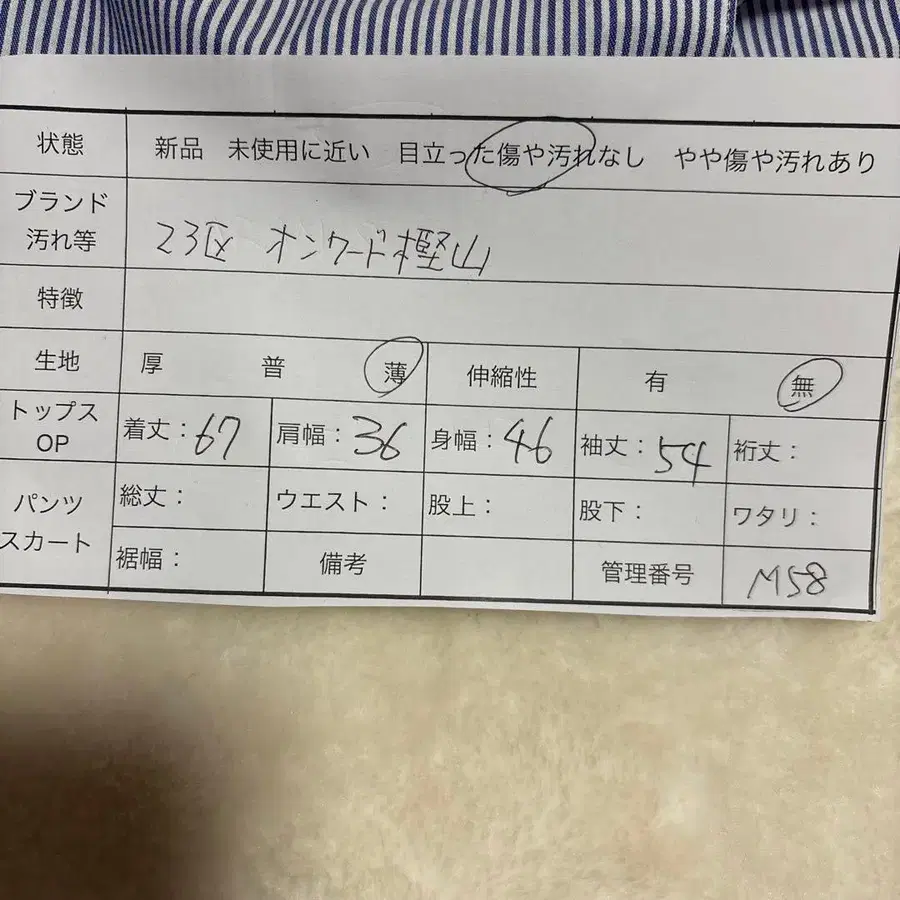 状態 新品 未使用に近い 目立った傷や汚れなし やや傷や汚れあり
ブランド
汚れ等 23区 オンワード樫山
特徴
生地 厚 普 薄 伸縮性 有 無
トップス
OP 着丈：67 肩幅：36 身幅：46 袖丈：54 裄丈：
パンツ
スカート 総丈： ウエスト： 股上： 股下： ワタリ：
裾幅： 備考 管理番号 M58